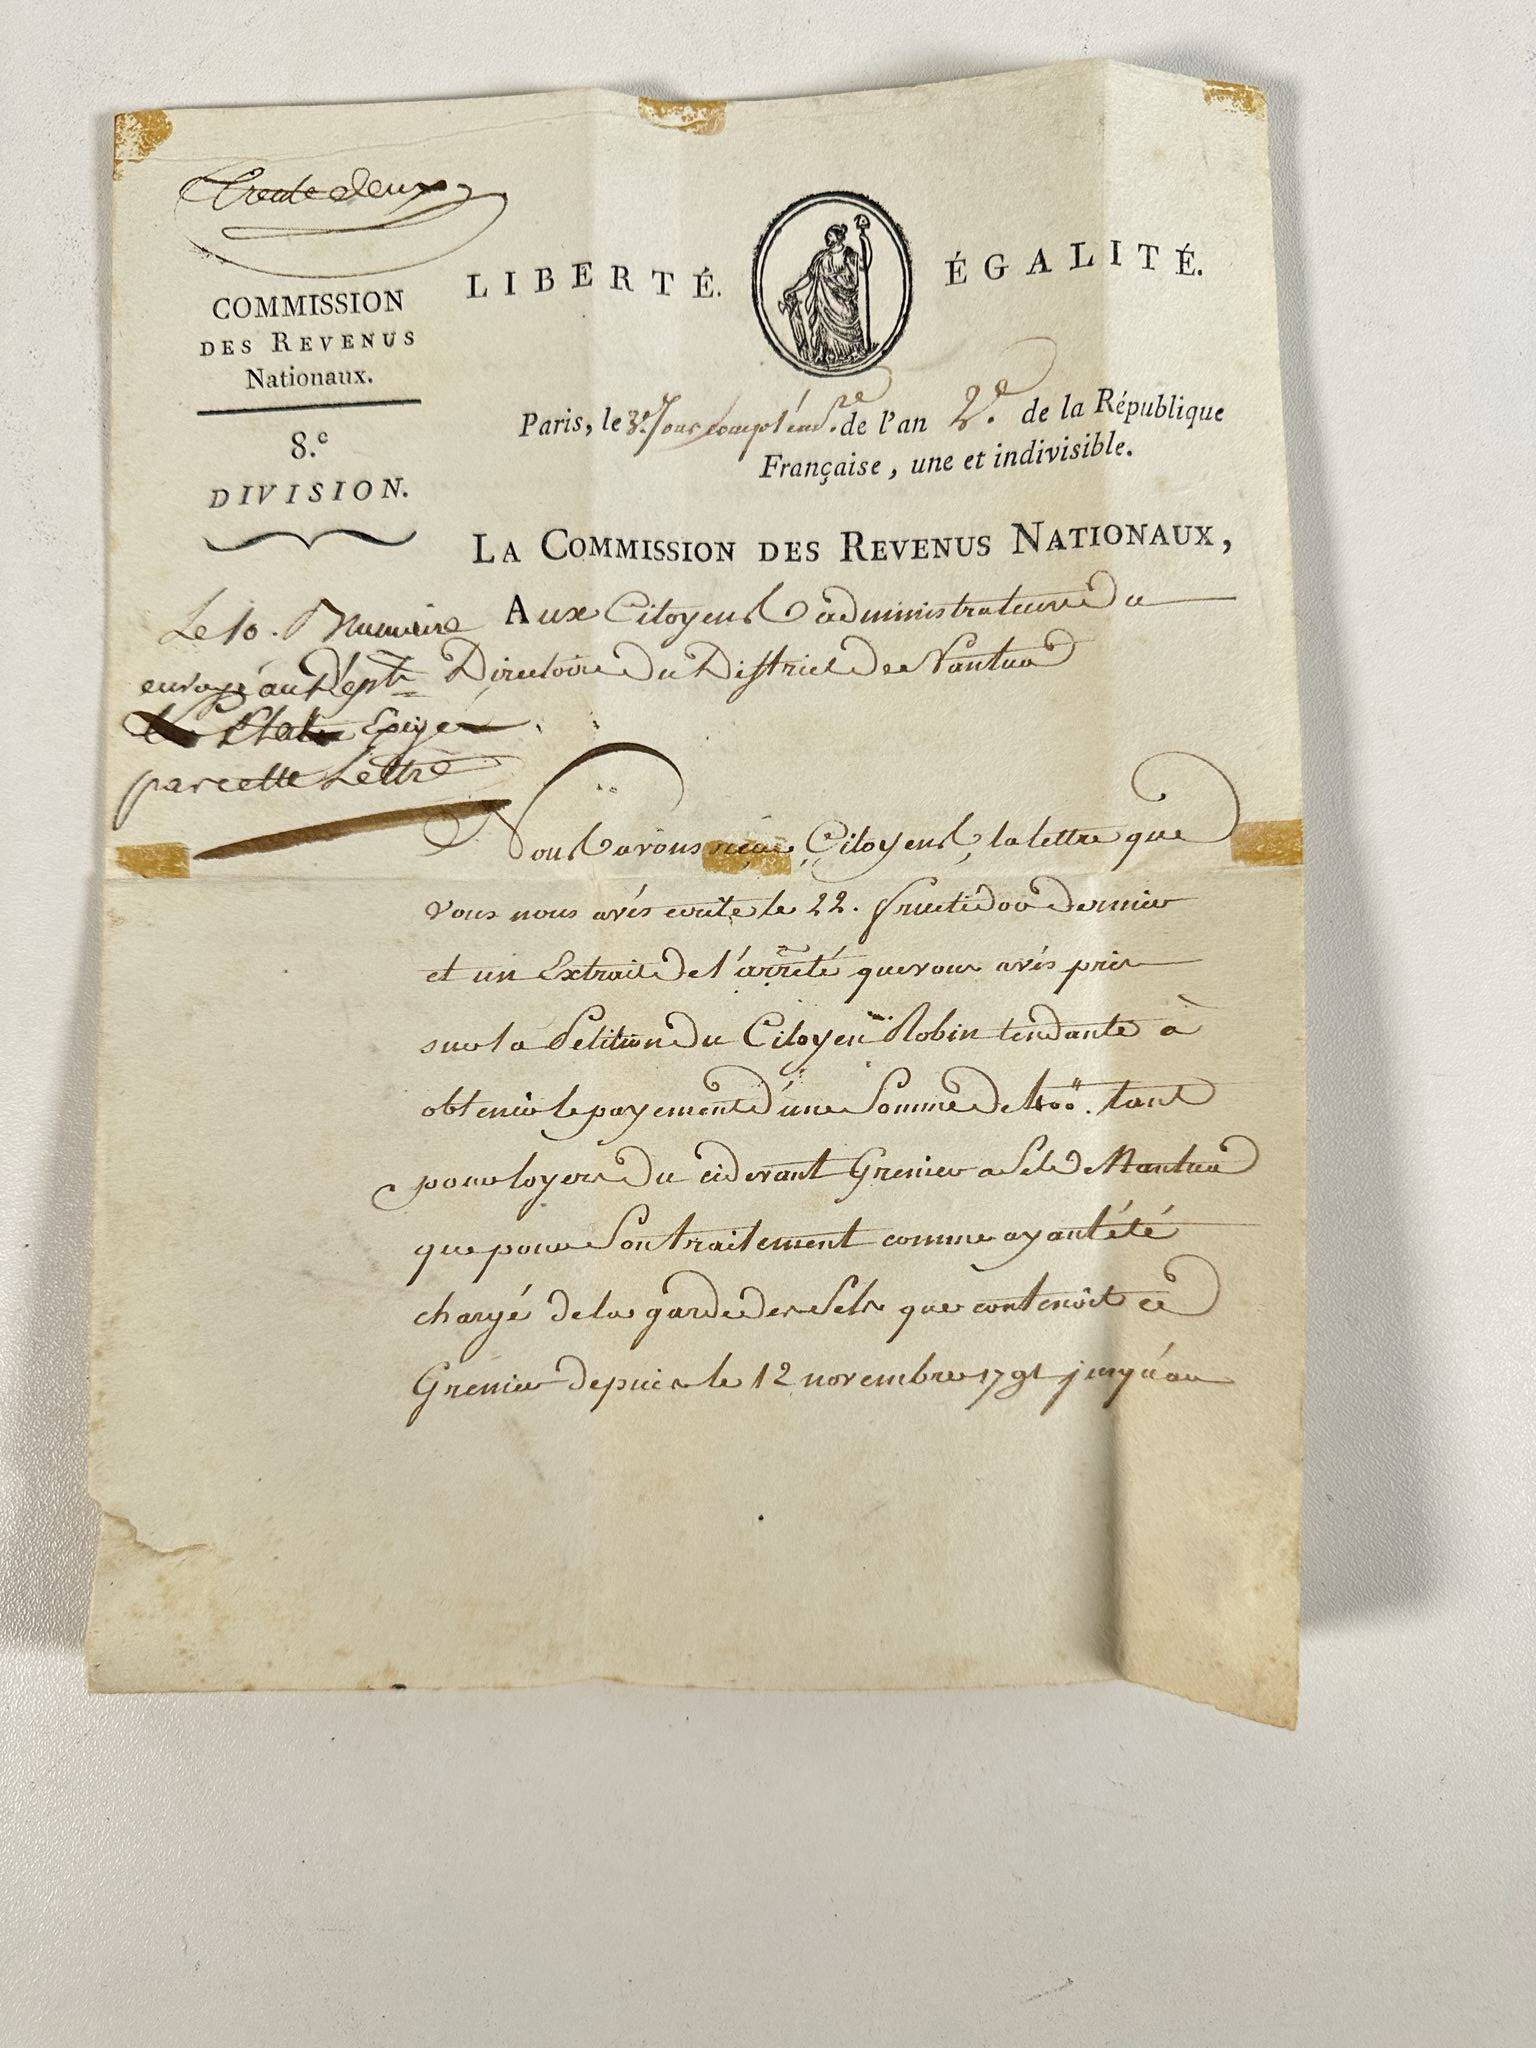 trente deux
LIBERTÉ. ÉGALITÉ.
COMMISSION
DES REVENUS
Nationaux.
8.e
DIVISION.
Paris, le 3e. Jour complém.re de l'an 2.e de la République
Française, une et indivisible.
LA COMMISSION DES REVENUS NATIONAUX,
Aux Citoyens administrateurs du
Directoire du District de Nantua
Le 10. Brumaire
envoyé au Dépt
Exigé
par cette Lettre
Nous avons reçu, Citoyens, la lettre que
vous nous avés ecrite le 22. fructidor dernier
et un Extrait de l'arrêté que vous avés pris
sur la Pétition du Citoyen Robin tendante à
obtenir le payement d'une Somme de 400.tt tant
pour loyers du cidevant Grenier a Sel de Nantua
que pour Son traitement comme ayant été
chargé de la garde des Sels que contenoit ce
Grenier depuis le 12 novembre 1791 jusqu'au